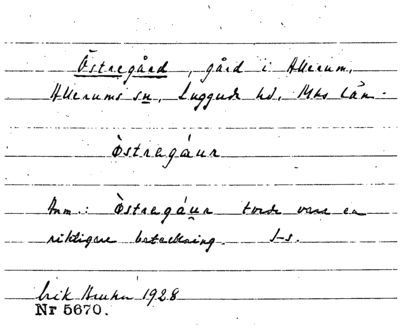 Östregård, gård i Allerum,
Allerums sn, Luggude hd, Mhs län.
Òstregáuꞃ
Anm.: Òstregáuꞃ torde vara en
riktigare beteckning. S-s.
Erik Bruhn 1928
Nr 5670.